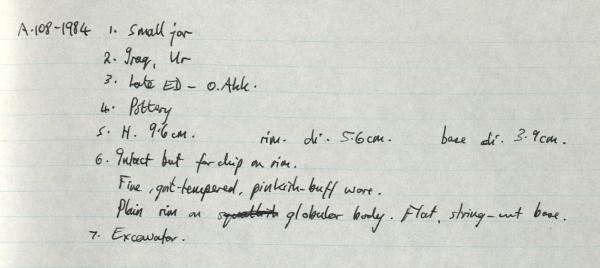 A.108-1984 1. Small jar
2. Iraq, Ur
3. Late ED - O.Akk.
4. Pottery
5. H. 9.6cm. rim. di. 5.6cm. base di. 3.9cm.
6. Intact but for chip on rim.
Fine, grit-tempered, pinkish-buff ware.
Plain rim on squattish globular body. Flat, string-cut base.
7. Excavator.